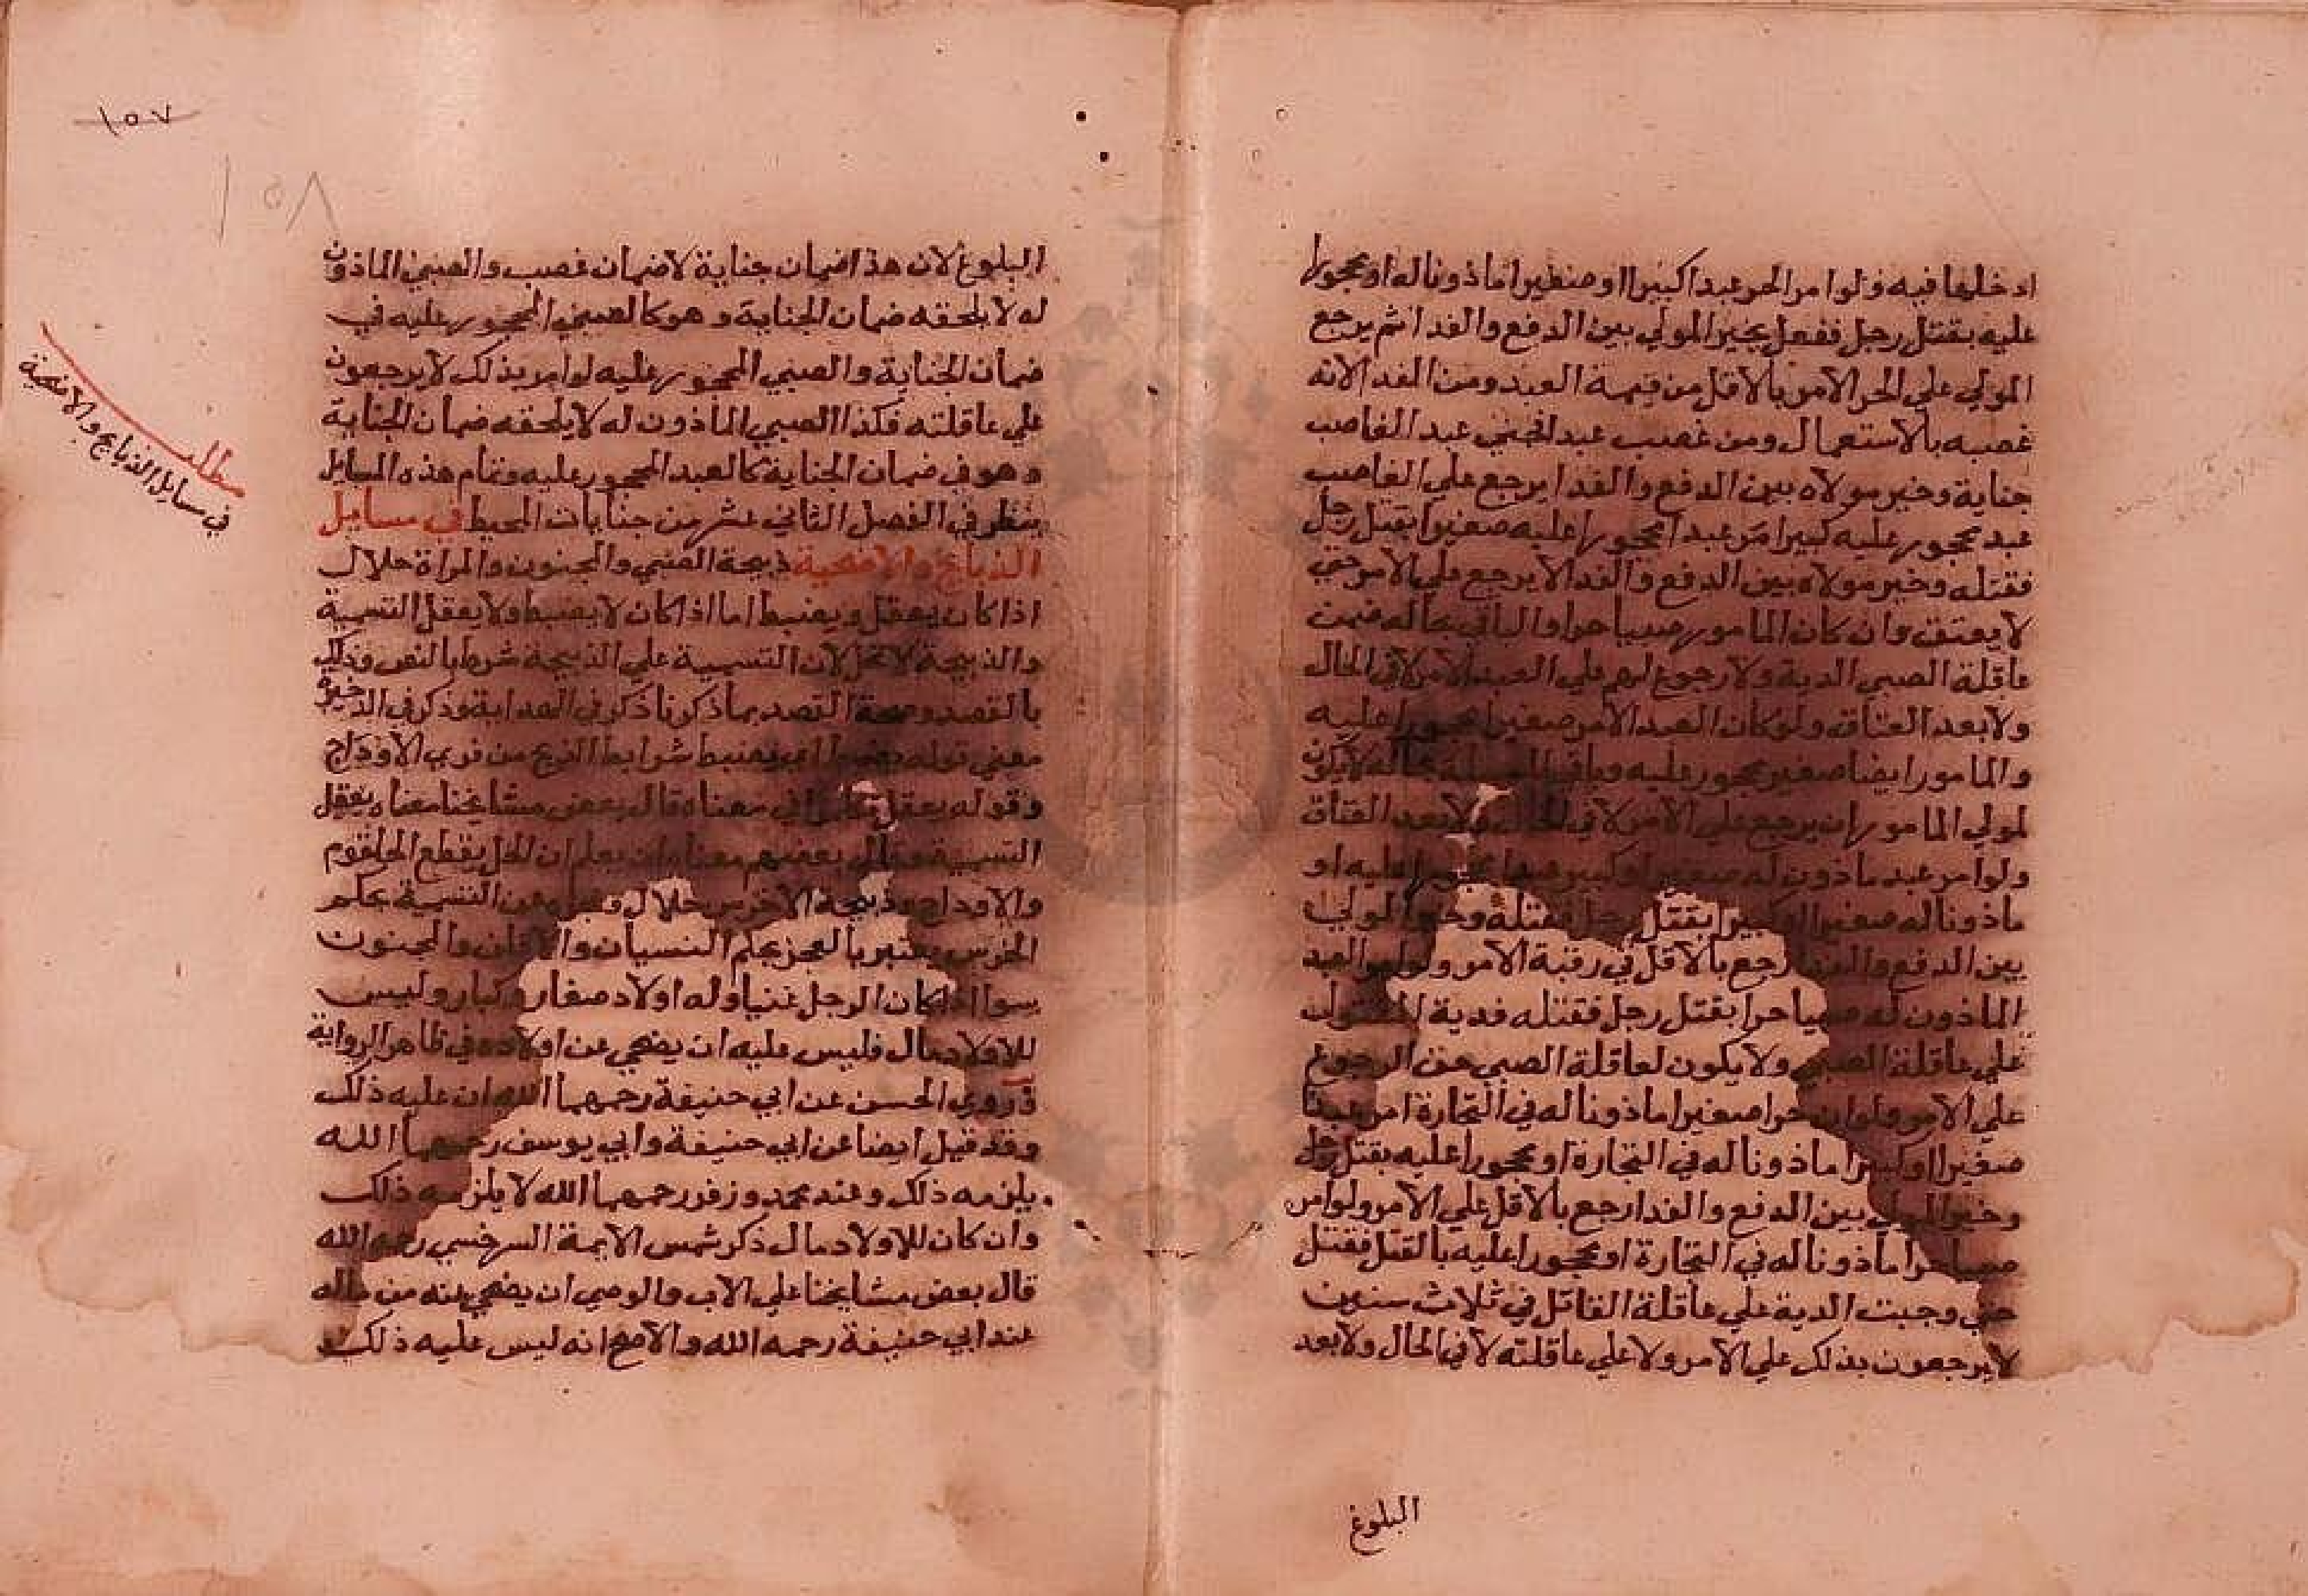 ادخلها فيه ولو امر الحر عبدا كبيرا او صغيرا ماذونا له او محجورا
عليه بقتل رجل ففعل يخير المولي بين الدفع والفدا ثم يرجع
المولي علي الحر الامر بالاقل من قيمة العبد ومن الفدا لانه
غصبه بالاستعمال ومن غصب عبد الجني عبد الغاصب
جناية وخير مولاه بين الدفع والفدا يرجع علي الغاصب
عبد محجور عليه كبير امر عبدا محجورا عليه صغيرا بقتل رجل
فقتله وخير مولاه بين الدفع والفدا لا يرجع علي الامر حتي
لا يعتق وان كان المامور صبيا حرا والباقي بحاله ضمنت
عاقلة الصبي الدية ولا رجوع لهم علي العبد الامر لا في الحال
ولا بعد العتاق ولو كان العبد الامر صغيرا محجورا عليه
والمامور ايضا صغير محجور عليه وباقي المسئلة بحاله لا يكون
لمولي المامور ان يرجع علي الامر لا في الحال ولا بعد العتاق
ولو امر عبد ماذون له صغير او كبير عبدا محجورا عليه او
ماذونا له صغيرا او كبيرا بقتل رجل فقتله وخير المولي
بين الدفع والفدا رجع بالاقل في رقبة الامر ولو امر العبد
الماذون له صبيا حرا بقتل رجل فقتله فدية المقتول
علي عاقلة الصبي ولا يكون لعاقلة الصبي حق الرجوع
علي الامر ولو ان حرا صغيرا ماذونا له في التجارة امر عبدا
صغيرا او كبيرا ماذونا له في التجارة او محجورا عليه بقتل رجل
وخير المولي بين الدفع والفدا رجع بالاقل علي الامر ولو امر
صبيا حرا ماذونا له في التجارة او محجورا عليه بالقتل فقتل
حتي وجبت الدية علي عاقلة القاتل في ثلاث سنين
لا يرجعون بذلك علي الامر ولا علي عاقلته لا في الحال ولا بعد
البلوغ
١٥٧
١٥٨
البلوغ لان هذا ضمان جناية لا ضمان غصب والصبي الماذون
له لا يلحقه ضمان الجناية وهو كالصبي المحجور عليه في
ضمان الجناية والصبي المحجور عليه لو امر بذلك لا يرجعون
علي عاقلته فكذا الصبي الماذون له لا يلحقه ضمان الجناية
وهو في ضمان الجناية كالعبد المحجور عليه وتمام هذه المسايل
ينظر في الفصل الثاني عشر من جنايات المحيط في مسايل
الذبايح والاضحية ذبيحة الصبي والمجنون والمراة حلال
اذا كان يعقل ويضبط اما اذا كان لا يضبط ولا يعقل التسمية
والذبيحة لا تحل لان التسمية علي الذبيحة شرط بالنص وذلك
بالقصد وصحة القصد بما ذكرنا ذكر في الهداية وذكر في الذخيرة
معني قوله يضبط اي يضبط شرايط الذبح من فري الاوداج
وقوله يعقل تكلموا في معناه قال بعض مشايخنا معناه يعقل
التسمية وقال بعضهم معناه ان يعلم ان الحل بقطع الحلقوم
والاوداج وذبيحة الاخرس حلال وعجزه عن التسمية بحكم
الخرس يعتبر بالعجز بحكم النسيان والاقلف والمجنون
سوا اذا كان الرجل غنيا وله اولاد صغار وكبار وليس
للاولاد مال فليس عليه ان يضحي عن اولاده في ظاهر الرواية
وروي الحسن عن ابي حنيفة رحمهما الله ان عليه ذلك
وقد قيل ايضا عن ابي حنيفة وابي يوسف رحمهما الله
يلزمه ذلك وعند محمد وزفر رحمهما الله لا يلزمه ذلك
وان كان للاولاد مال ذكر شمس الايمة السرخسي رحمه الله
قال بعض مشايخنا علي الاب والوصي ان يضحي عنه من ماله
عند ابي حنيفة رحمه الله والاصح انه ليس عليه ذلك
مطلب
في مسايل الذبايح والاضحية